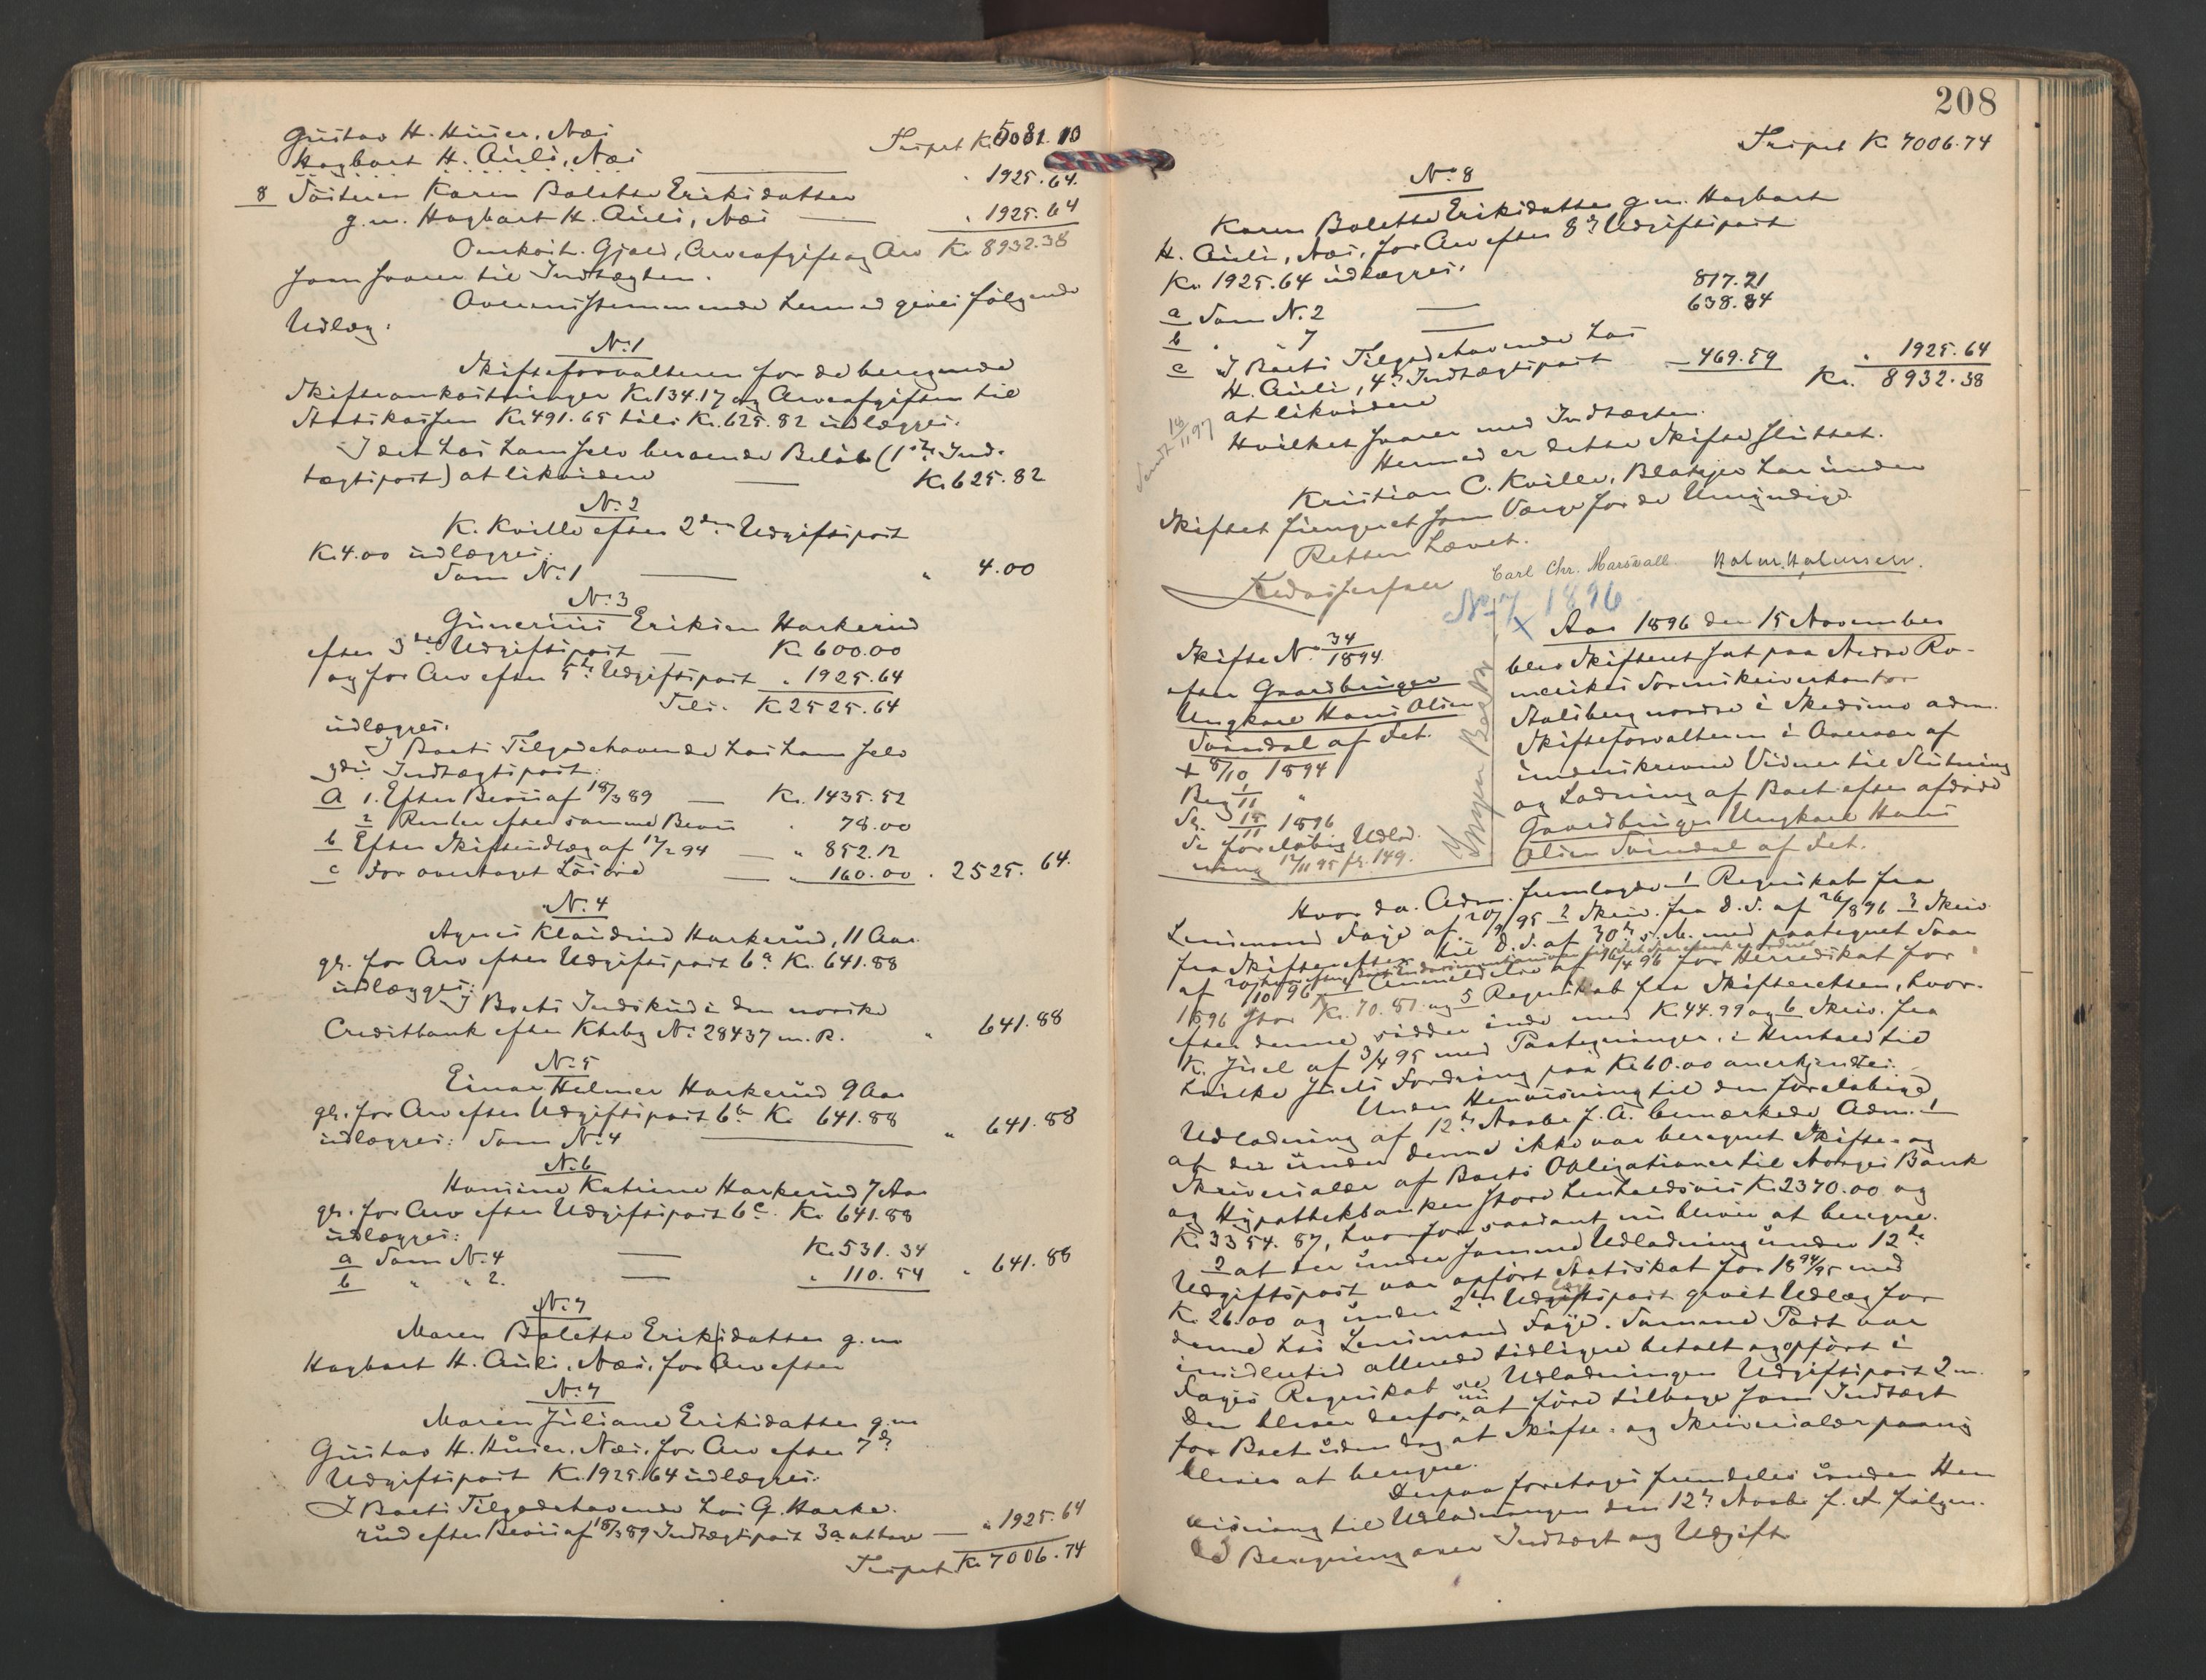 Gustav H. Huser, Næs
Hagbart H. Auli, Næs
Tspt K. 5081.10
" 1925.64.
8 Søsteren Karen Bolette Eriksdatter
g.m. Hagbart H. Auli, Næs — " 1925.64
Omkostn. Gjæld, Arveafgift og Arv Kr 8932.38
som svarer til Indtægten.
Overensstemmende hermed gives følgende
Udlæg:
No 1
Skifteforvalteren for de beregnede
Skifteomkostninger Kr. 134.17 og Arveafgiften til
Statskassen Kr. 491.65 tils. Kr. 625.82 udlægges.
I det hos ham selv beroende Beløb (1ste Ind-
tægtspost) at likvidere — Kr. 625.82
No 2
K. Kville efter 2den Udgiftspost
Kr. 4.00 udlægges:
Som No 1 — " 4.00
No 3
Gunerius Eriksen Harkerud
efter 3die Udgiftspost — Kr. 600.00
og for Arv efter 5te Udgiftspost " 1925.64
Tils. K. 2525.64
udlægges:
I Boets Tilgodehavende hos ham selv
3die Indtægtspost:
a 1. Efter Bevis af 18/3 89 — Kr. 1435.52
2 Renter efter samme Bevis " 78.00
b Efter Skifteudlæg af 12/2 94 — " 852.12
c For overtaget Løsøre — " 160.00 . 2525.64.
No. 4
Agnes Klaudine Harkerud, 11 Aar
gl. for Arv efter Udgiftspost 6a Kr. 641.88
udlægges:
I Boets Indskud i den norske
Creditbank efter Ktrbg No 28437 m. R. " 641.88
No 5
Einar Helmer Harkerud 9 Aar
gl. for Arv efter Udgiftspost 6b K. 641.88
udlægges: Som No 4 — " 641.88
No 6
Hansine Katrine Harkerud 7 Aar
gl. for Arv efter Udgiftspost 6c. Kr. 641.88
udlægges:
a Som No. 4 — Kr. 531.34
b " " 2. — " 110.54 " 641.88
No 7
Maren Bolette Eriksdatter g.m
Hagbart H. Auli, Næs, for Arv efter
No 7
Maren Juliane Eriksdatter g.m
Gustav H. Huser, Næs, for Arv efter 7de
Udgiftspost Kr. 1925.64 udlægges:
I Boets Tilgodehavende hos G. Harke-
rud efter Bevis af 18/3 89 Indtægtspost 3a — " 1925.64
Tspt Kr 7006.74
208
Tspt K 7006.74
No 8
Karen Bolette Eriksdatter g.m. Hagbart
H. Auli, Næs, for Arv efter 8de Udgiftspost
Kr. 1925.64 udlægges:
a Som No. 2 — 817.21
b " " 7 — 638.84
c I Boets Tilgodehavende hos
H. Auli, 4de Indtægtspost — 469.59 " 1925.64
at likvidere Kr. 8932.38
Sendt 16/11 97
Hvilket svarer med Indtægten.
Hermed er dette Skifte sluttet.
Kristian C. Kville, Blakjer har under
Skiftet fungeret som Værge for de Umyndige.
Retten hævet.
Carl Chr. Marsvall Halv. Halvorsen.
No 7 1896
Skifte No 34/1894
efter Gaardbruger
Ungkarl Hans Olsen
Svindal af Fet.
+ 8/10 1894
Beg 1/11 "
Sl. 15/11 1896
Se foreløbig Udlod-
ning 12/11 95 fl. 149.
Ingen Besk
X Aar 1896 den 15 November
blev Skifteret sat paa Nedre Ro-
merikes Sorenskriverkontor
Aalsberg nordre i Skedsmo adm.
Skifteforvalteren i Overvær af
underskrevne Vidner til Slutning
og Lodning af Boet efter afdøde
Gaardbruger Ungkarl Hans
Olsen Svindal af Fet.
Hvor da. Adm. fremlagde 1 Regnskab fra
Lensmand Faye af 20/9 95 2 Skriv. fra D. S. af 26/8 96 3 Skriv
fra Skifteretten til D. S. af 30te s. M. med paategnet Svar
af 20/10 96 4 af 16/4 96 for Herredskat for
1896 stor Kr. 70.87 og 5 Regnskab fra Skifteretten, hvor-
efter denne sidder inde med K. 44.99 og 6 Skriv. fra
K. Juel af 3/4 95 med Paategninger, i Henhold til
hvilke Juels Fordring paa Kr. 60.00 anerkjendtes.
Under Henvisning til den foreløbige
Udlodning af 12te Novbr f. A. bemærkede Adm. 1
at der under denne ikke var beregnet Skifte- og
Skriversalær af Boets Obligationer til Norges Bank
og Hypothekbanken store henholdsvis K. 2370.00 og
K. 3354.87, hvorfor saadant nu bliver at beregne.
2 at der under samme Udlodning under 12te
Udgiftspost var opført Statsskat for 1894/95 med
K. 26.00 og under 2det Udgiftspost givet Udlæg for
denne hos Lensmand Faye. Samme Post var
imidlertid allerede tidligere betalt og opført i
Fayes Regnskab Udlodningen Udgiftspost 2 m.
Den bliver derfor nu at føre tilbage som Indtægt
for Boet uden dog at Skifte- og Skriversalær paany
bliver at beregne.
Derpaa foretages fremdeles under Hen
visning til Udlodningen den 12te Novbr f. A følgen-
de Beregning over Indtægt og Udgift